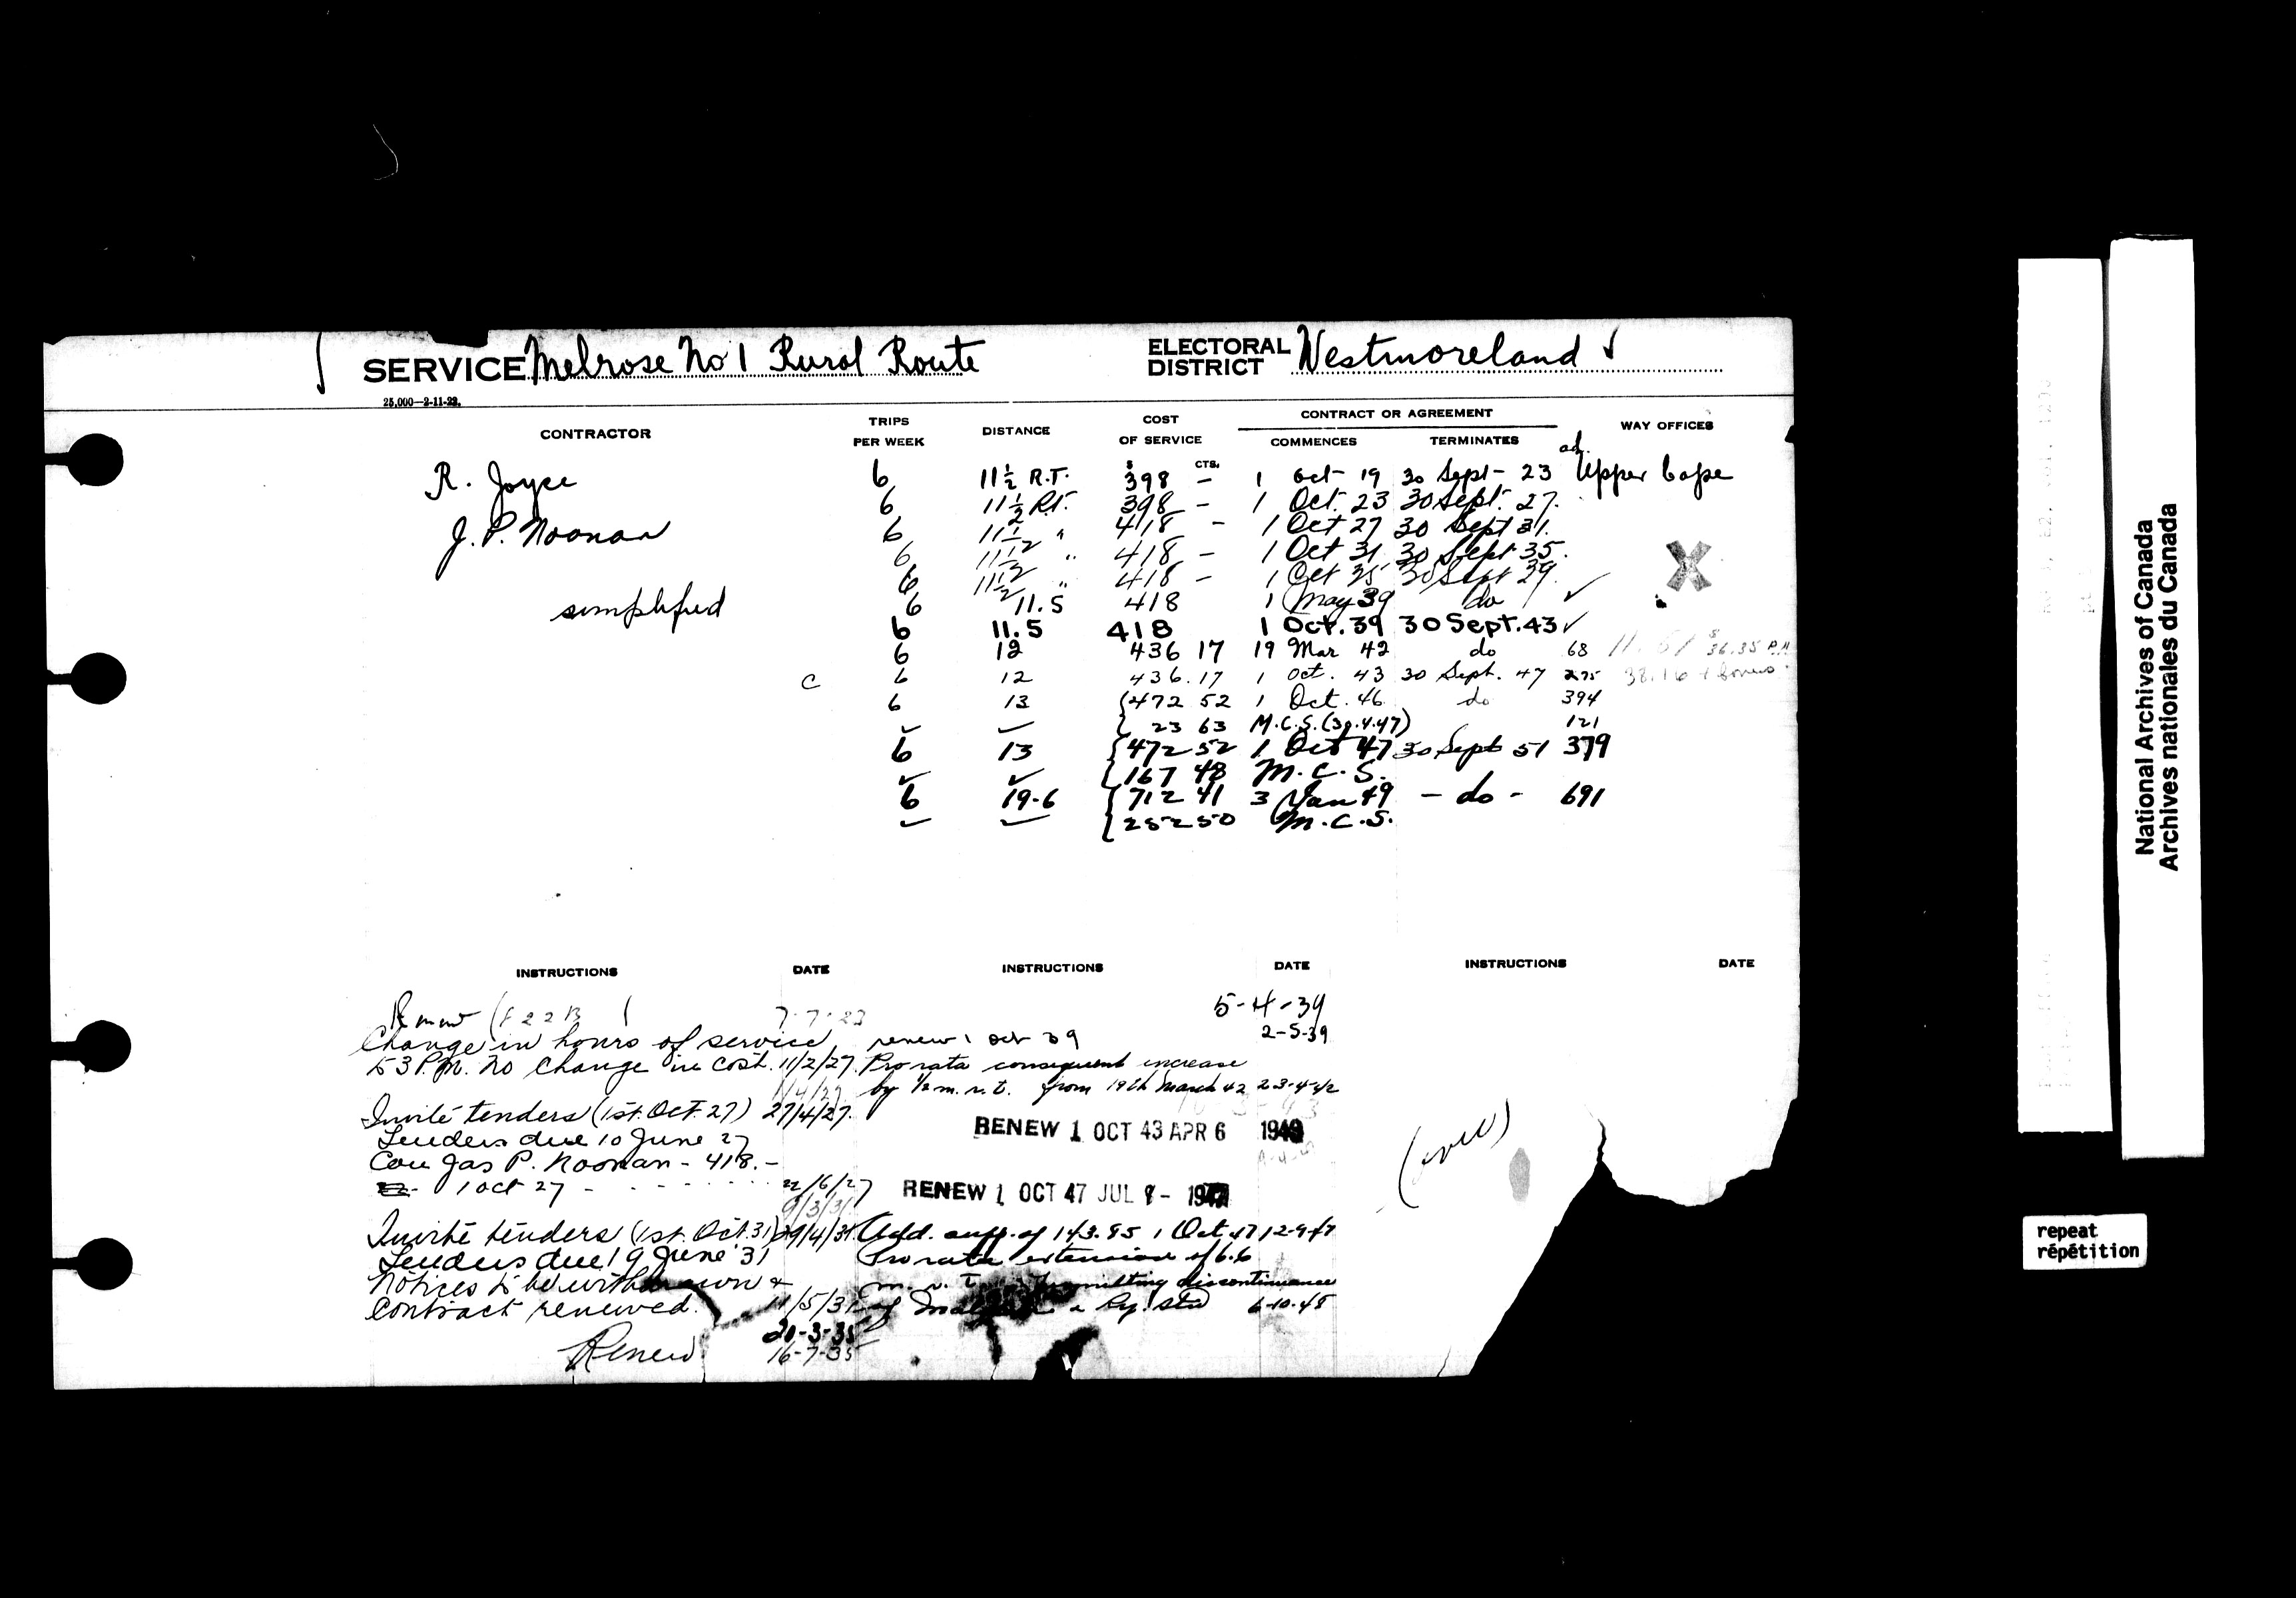 SERVICE Melrose No 1 Rural Route ELECTORAL DISTRICT Westmoreland
25,000—2-11-22.
CONTRACTOR TRIPS PER WEEK DISTANCE COST OF SERVICE CONTRACT OR AGREEMENT COMMENCES TERMINATES WAY OFFICES
$ CTS.
R. Joyce 6 11½ R.T. 398 – 1 Oct 19 30 Sept – 23 Upper Cape
6 11½ R.T. 398 – 1 Oct. 23 30 Sept. 27.
J. P. Noonan 6 11½ " 418 – 1 Oct 27 30 Sept 31.
6 11½ " 418 – 1 Oct 31 30 Sept 35.
6 11½ " 418 – 1 Oct 35 30 Sept 39. X
simplified 6 11.5 418 1 May 39 do ✓
6 11.5 418 1 Oct. 39 30 Sept. 43 ✓
6 12 436 17 19 Mar 42 do 68 36.35
C 6 12 436.17 1 Oct. 43 30 Sept. 47 275 38.16 + bonus
6 13 { 472 52 1 Oct. 46 do 394
✓ ✓ { 23 63 M.C.S. (30.4.47) 121
6 13 { 472 52 1 Oct 47 30 Sept 51 379
✓ ✓ { 167 48 M.C.S.
6 19.6 { 712 41 3 Jan 49 – do – 691
✓ ✓ { 252 50 M.C.S.
INSTRUCTIONS DATE INSTRUCTIONS DATE INSTRUCTIONS DATE
Renew 7-7-23
Change in hours of service
to 3 P.M. No change in cost. 11/2/27.
1/4/27.
Invite tenders (1st. Oct. 27) 27/4/27.
Tenders due 10 June 27
Con Jas P. Noonan – 418.–
1 Oct 27 - - - - - - 22/6/27
9/3/31
Invite tenders (1st. Oct. 31) 29/4/31.
Tenders due 19 June '31
Notices to be withdrawn &
contract renewed. 11/5/31
20-3-35
Renew 16-7-35
5-4-39
renew 1 Oct 39 2-5-39
Pro rata consequent increase
by ½ m. r.t. from 19th March 42 23-4-42
RENEW 1 OCT 43 APR 6 1943
RENEW 1 OCT 47 JUL 8 - 1947
Add. supp. of 143.85 1 Oct 47 12-9-47
Pro rata extension of 6.6
m. r. T permitting discontinuance
of Ry. Stn 6-10-48
(over)
National Archives of Canada
Archives nationales du Canada
repeat
répétition